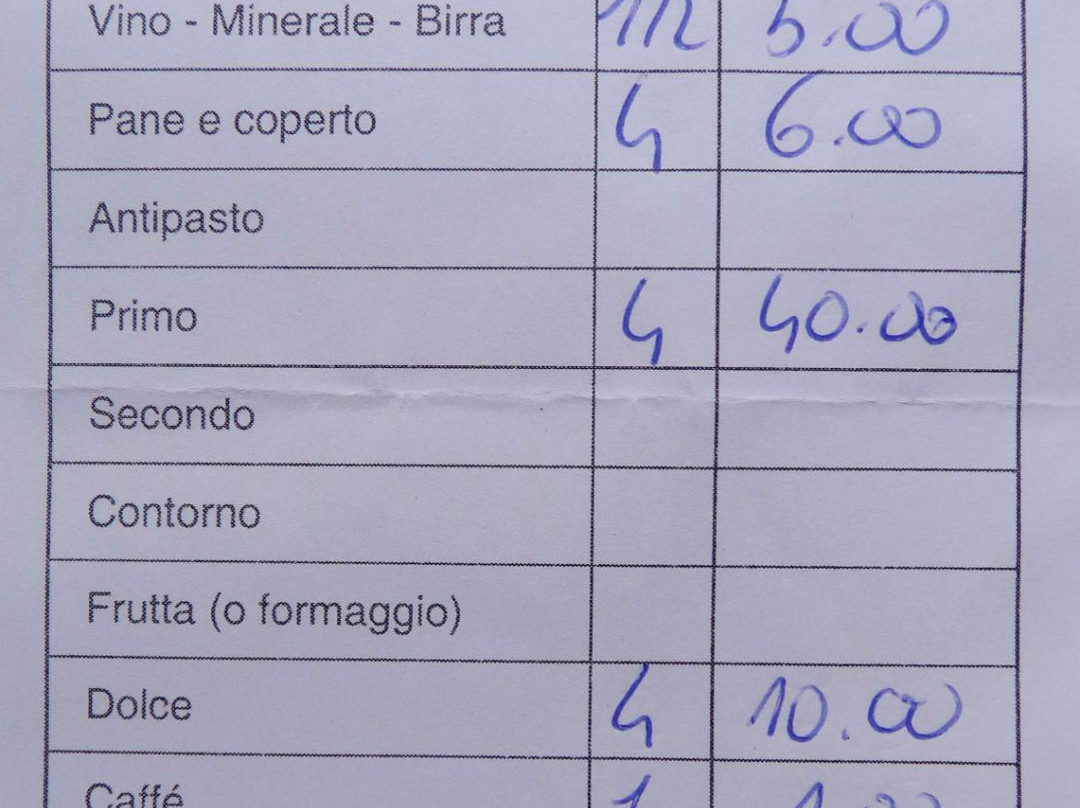 Vino - Minerale - Birra 5.00
Pane e coperto 4 6.00
Antipasto
Primo 4 40.00
Secondo
Contorno
Frutta (o formaggio)
Dolce 4 10.00
Caffé 1